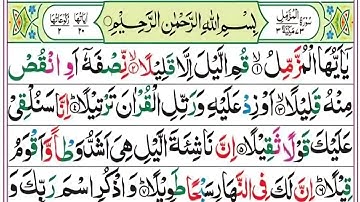 سُوْرَةُ الْمُزَّمِّلِ مَكِّيَّةٌ بِسْمِ اللّٰهِ الرَّحْمٰنِ الرَّحِيْمِ اٰيَاتُهَا ٢٠ رُكُوْعَاتُهَا ٢
يٰۤاَيُّهَا الْمُزَّمِّلُ ۝١ قُمِ الَّيْلَ اِلَّا قَلِيْلًا ۝٢ نِّصْفَهٗۤ اَوِ انْقُصْ
مِنْهُ قَلِيْلًا ۝٣ اَوْ زِدْ عَلَيْهِ وَرَتِّلِ الْقُرْاٰنَ تَرْتِيْلًا ۝٤ اِنَّا سَنُلْقِيْ
عَلَيْكَ قَوْلًا ثَقِيْلًا ۝٥ اِنَّ نَاشِئَةَ الَّيْلِ هِيَ اَشَدُّ وَطْاً وَّاَقْوَمُ
قِيْلًا ۝٦ اِنَّ لَكَ فِي النَّهَارِ سَبْحًا طَوِيْلًا ۝٧ وَاذْكُرِ اسْمَ رَبِّكَ وَ